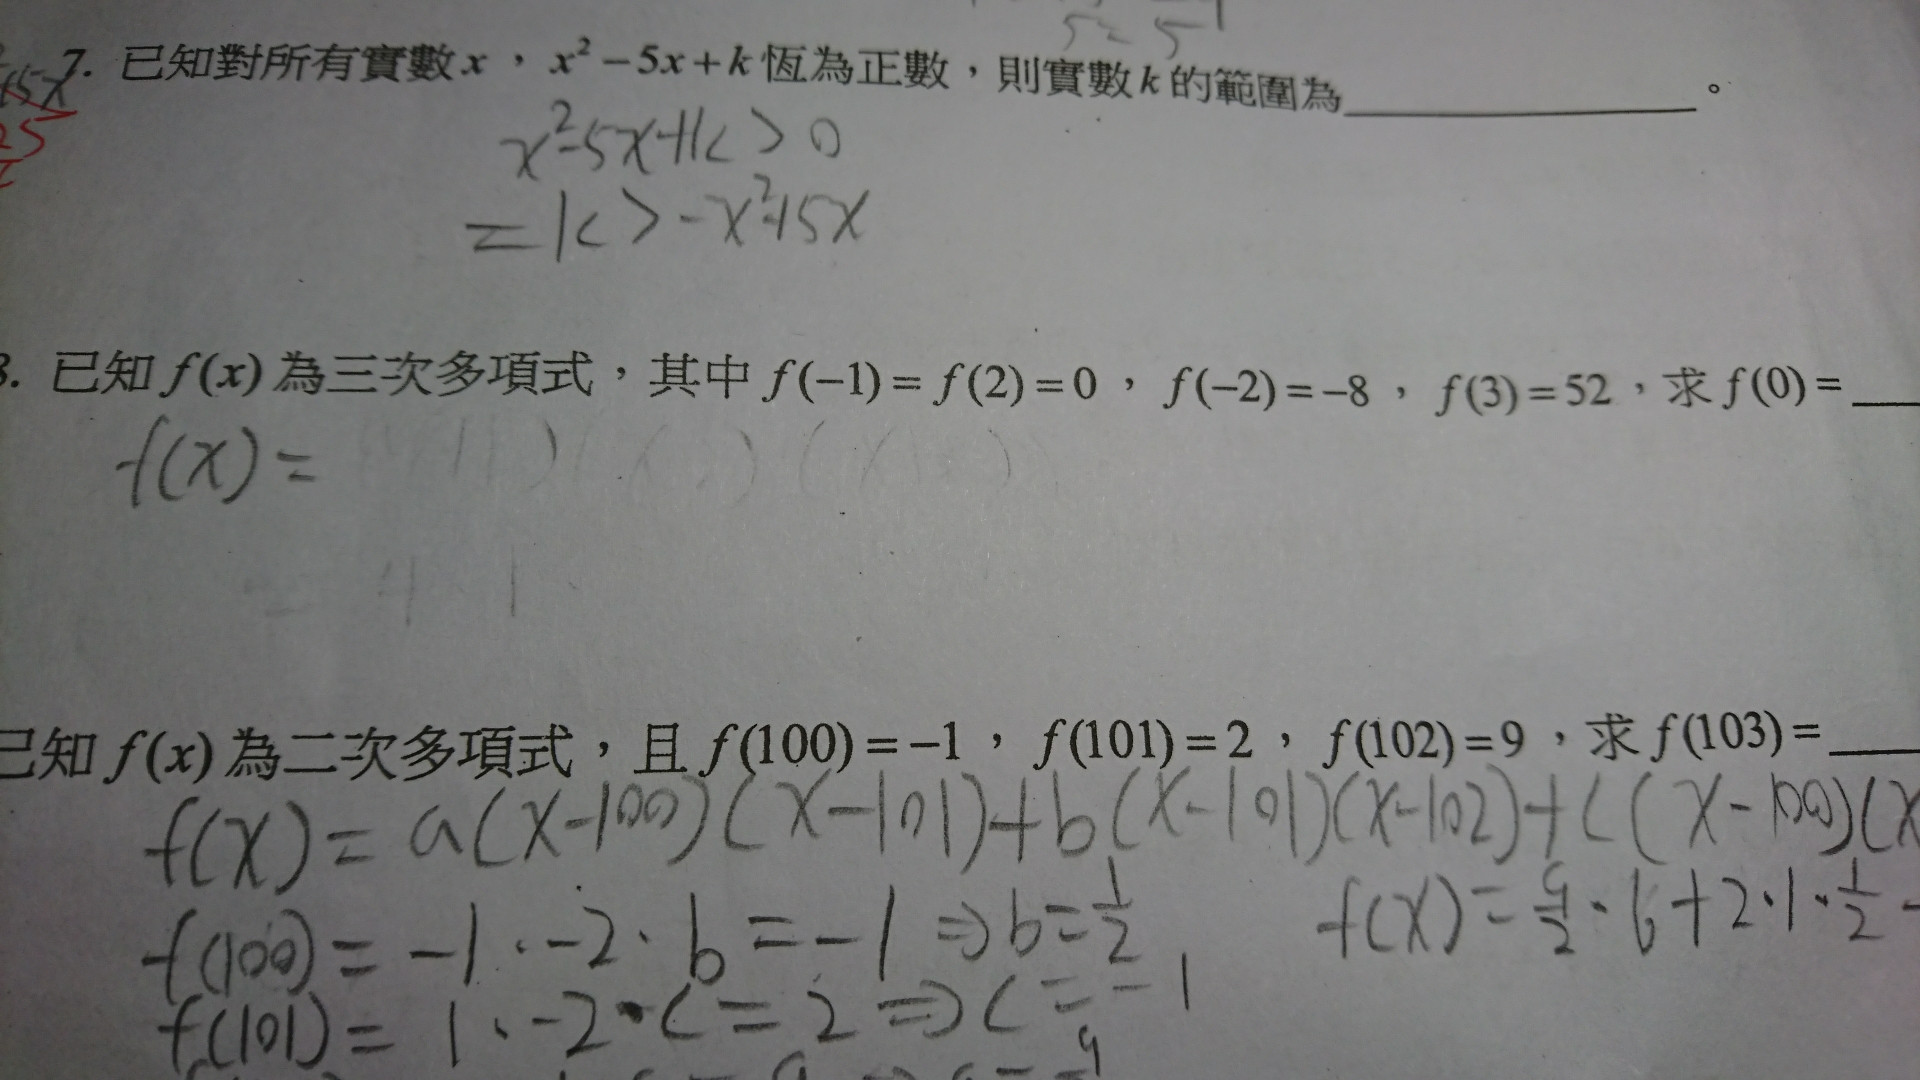 7. 已知對所有實數x,x²−5x+k恆為正數,則實數k的範圍為__________。
x²-5x+k>0
=k>-x²+5x
已知f(x)為三次多項式,其中f(−1)=f(2)=0,f(−2)=−8,f(3)=52,求f(0)=__
f(x)=
已知f(x)為二次多項式,且f(100)=−1,f(101)=2,f(102)=9,求f(103)=__
f(x)=a(x-100)(x-101)+b(x-101)(x-102)+c(x-100)(x
f(x)=9/2·6+2·1·1/2-
f(100)=-1·-2·b=-1⇒b=1/2
f(101)=1·-2·c=2⇒c=-1